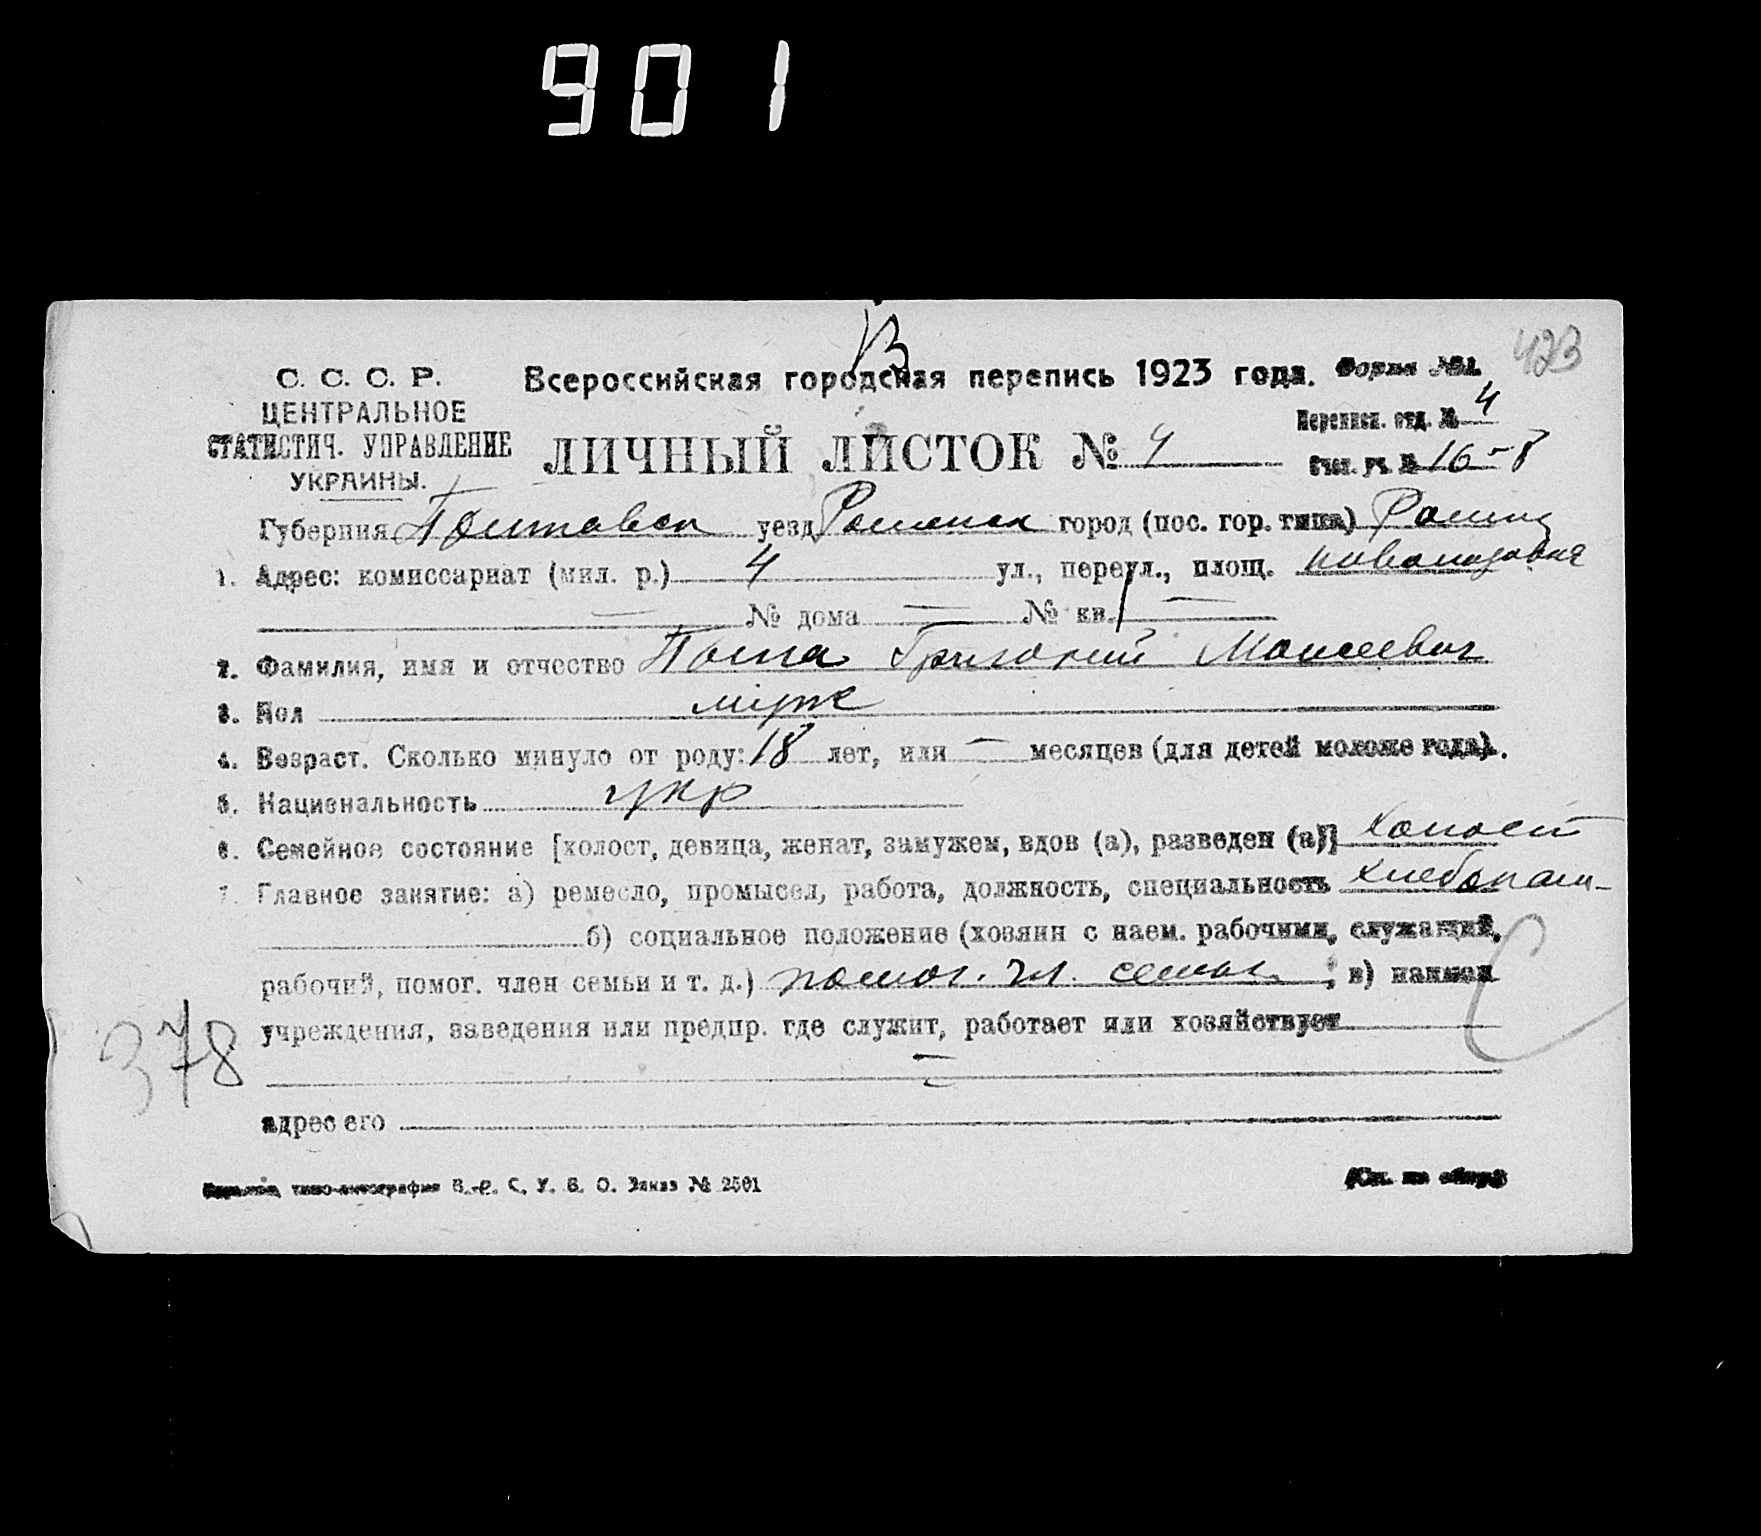 901
13
423
С. С. С. Р.
ЦЕНТРАЛЬНОЕ
СТАТИСТИЧ. УПРАВЛЕНИЕ
УКРАИНЫ.
Всероссийская городская перепись 1923 года. Форма №1.
ЛИЧНЫЙ ЛИСТОК № 4
Переписн. отд. № 4
Счет. уч. № 16-8
Губерния Полтавск уезд Роменск город (пос. гор. типа) Ромны
1. Адрес: комиссариат (мил. р.) 4 ул., переул., площ.
— № дома — № кв. —
2. Фамилия, имя и отчество Григорий Моисеевич
3. Пол муж
4. Возраст. Сколько минуло от роду: 18 лет, или — месяцев (для детей моложе года).
5. Национальность укр
6. Семейное состояние [холост, девица, женат, замужем, вдов (а), разведен (а)] холост
7. Главное занятие: а) ремесло, промысел, работа, должность, специальность хлебопаш-
б) социальное положение (хозяин с наем. рабочими, служащий,
рабочий, помог. член семьи и т. д.) помог. чл. семьи ; в) наимен
учреждения, заведения или предпр. где служит, работает или хозяйствует
—
378
адрес его
типо-литография В.-Р. С. У. В. О. Заказ № 2501
(См. на обор.)